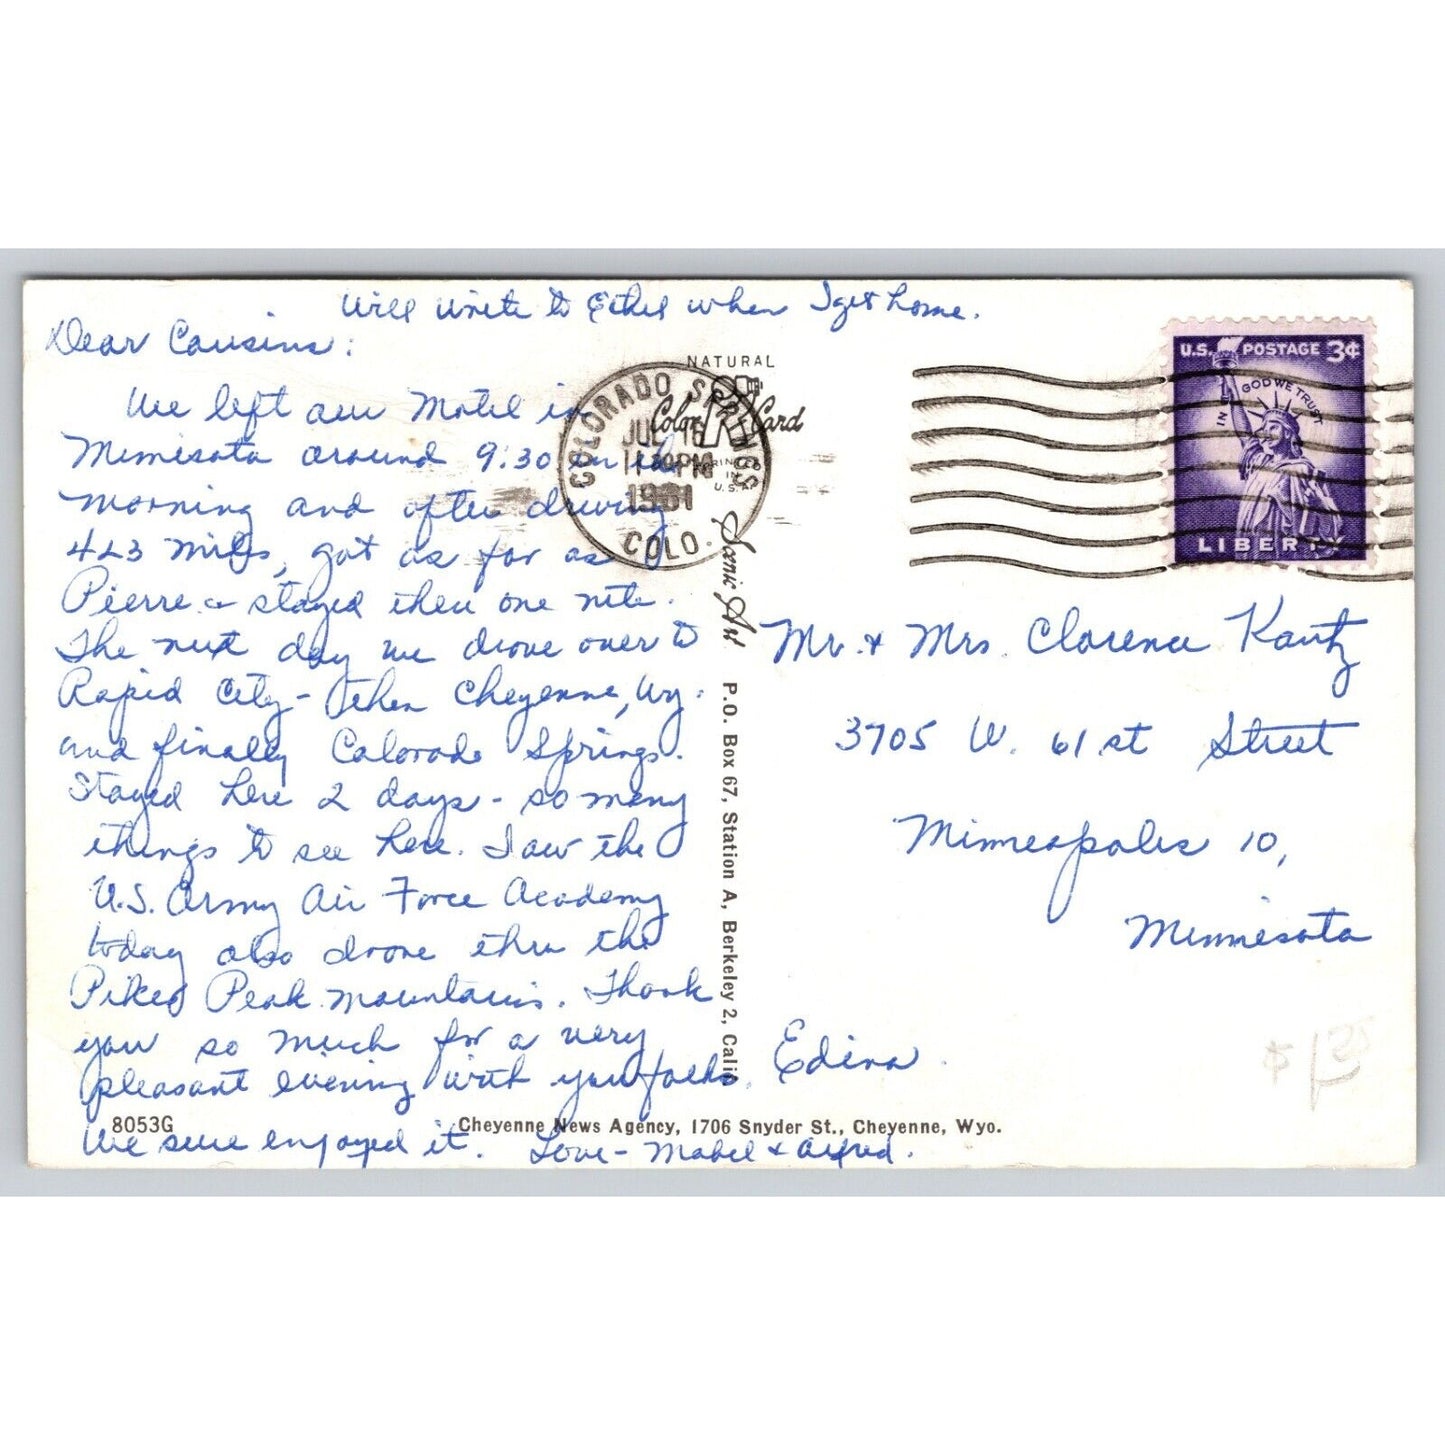 Will write to Ethel when I get home.
Dear Cousins:
We left our Motel in
Minnesota around 9:30 in the
morning and after driving
423 miles, got as far as
Pierre & stayed there one nite.
The next day we drove over to
Rapid City - then Cheyenne, Wy.
and finally Colorado Springs.
Stayed here 2 days - so many
things to see here. Saw the
U.S. Army Air Force Academy
today also drove thru the
Pikes Peak mountains. Thank
you so much for a very
pleasant evening with you folks.
We sure enjoyed it. Love - Mabel & Alfred.
8053G
Cheyenne News Agency, 1706 Snyder St., Cheyenne, Wyo.
NATURAL
Color Card
IN
U.S.A.
Scenic Art P.O. Box 67, Station A, Berkeley 2, Calif
COLORADO SPRINGS
JUL 16
PM
1961
COLO.
U.S. POSTAGE 3¢
IN GOD WE TRUST
LIBERTY
Mr. & Mrs. Clarence Kantz
3705 W. 61 st Street
Minneapolis 10,
Minnesota
Edina
$1.25